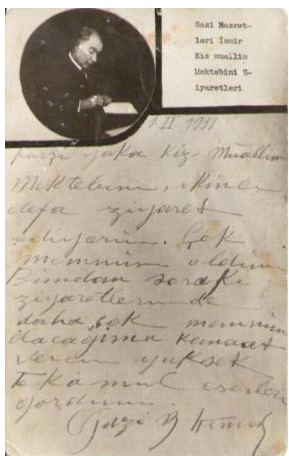 Gazi Hazret-
leri İzmir
Kız muallim
Mektebini Z-
iyaretleri
1.II.1931
Karşı yaka kız Muallim
Mektebini, ikinci
defa ziyaret
ediyorum. Çok
memnun oldum.
Bundan sonraki
ziyaretlerimde
daha çok memnun
olacağıma kanaat
veren yüksek
tekâmül eserleri
gördüm.
Gazi M Kemal